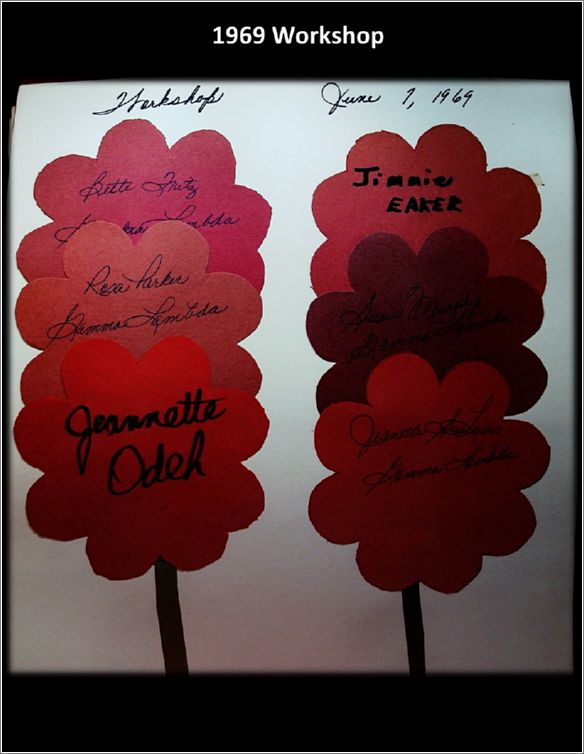 1969 Workshop
Workshop June 7, 1969
Bette Fritz
Lambda
Rosa Parker
Gamma Lambda
Jeannette
Odeh
Jimmie
EAKER
Susie Murphy
Gamma Lambda
Jeanette
Gamma Lambda